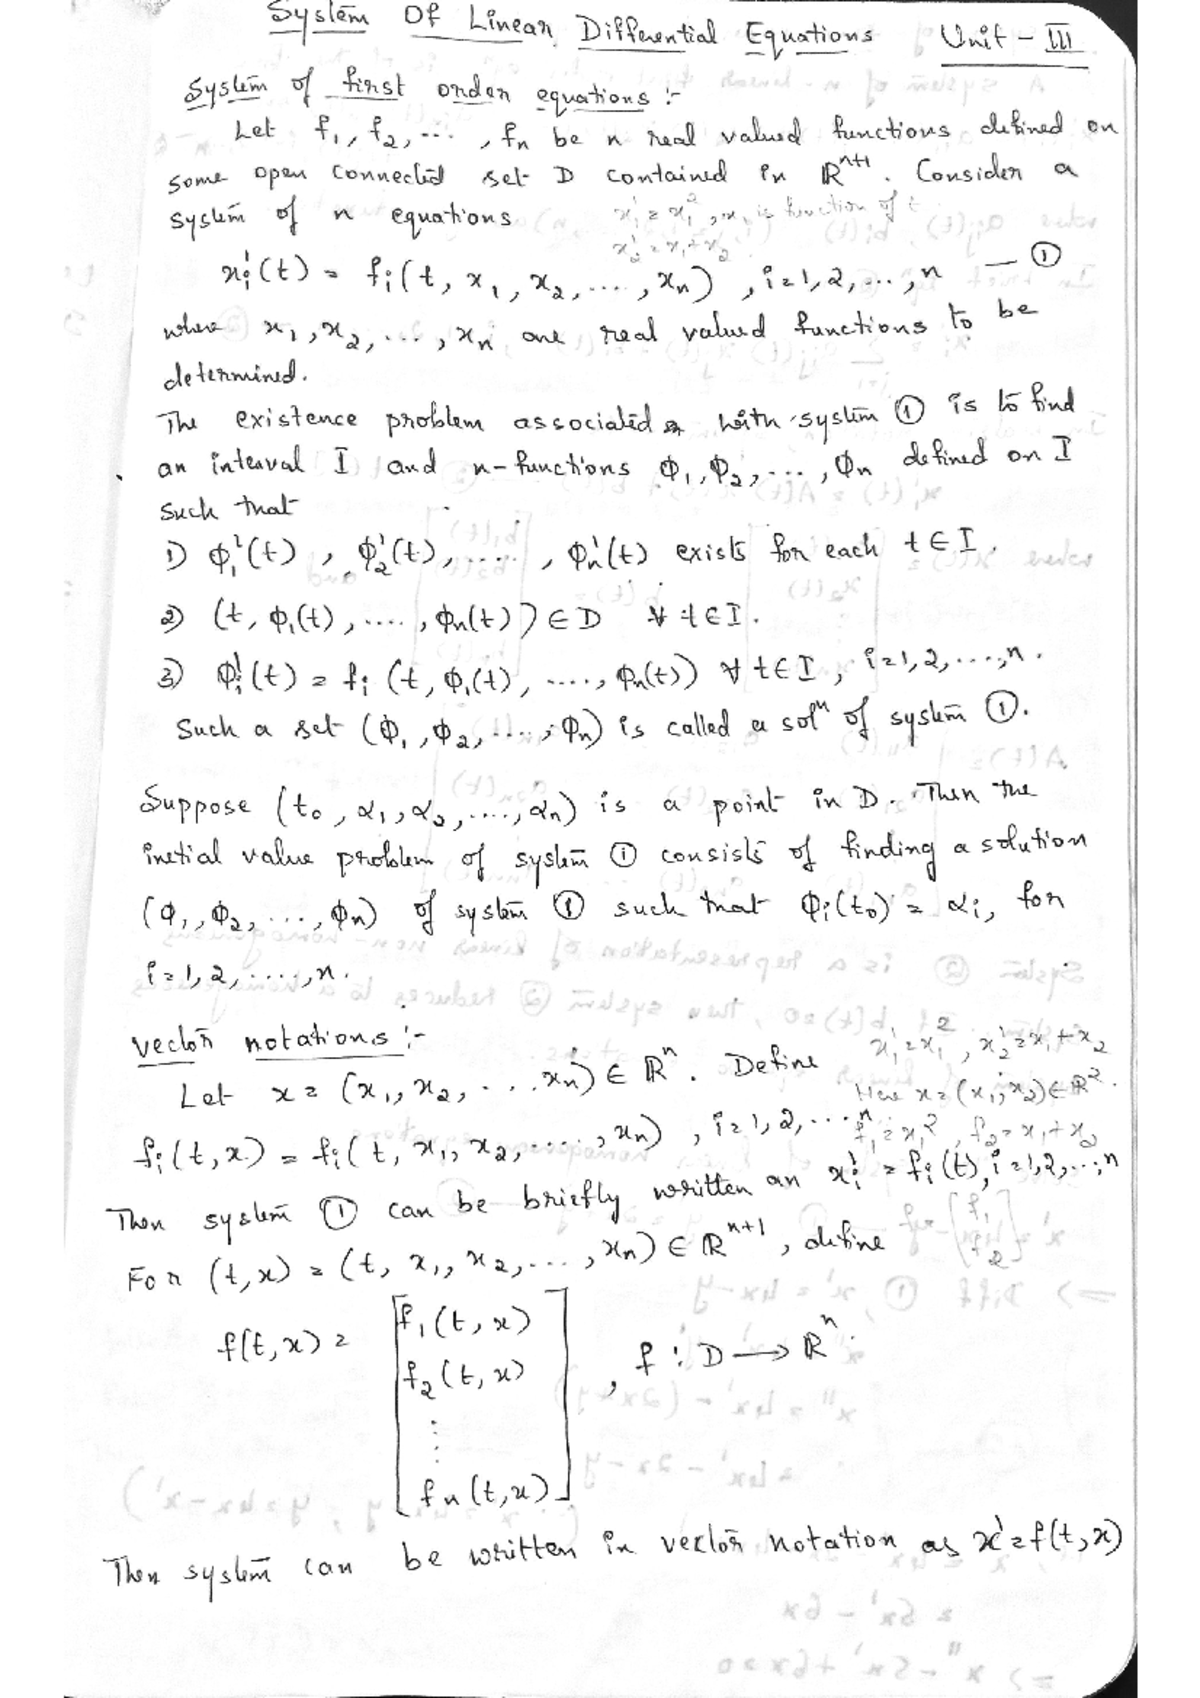 System Of Linear Differential Equations Unit - III
System of first order equations :-
Let f₁, f₂, ..., fn be n real valued functions defined on
some open connected set D contained in ℝⁿ⁺¹. Consider a
system of n equations
x₁' = x₁², x₁ is function of t
x₂' = x₁ + x₂
xi'(t) = fi(t, x₁, x₂, ..., xn), i=1,2,...,n — ①
where x₁, x₂, ..., xn are real valued functions to be
determined.
The existence problem associated with system ① is to find
an interval I and n-functions Φ₁, Φ₂, ..., Φn defined on I
such that
1) Φ₁'(t), Φ₂'(t), ....., Φn'(t) exists for each t ∈ I.
2) (t, Φ₁(t), ...., Φn(t)) ∈ D ∀ t ∈ I.
3) Φi'(t) = fi (t, Φ₁(t), ....., Φn(t)) ∀ t ∈ I, i=1,2,.....,n.
Such a set (Φ₁, Φ₂, ...., Φn) is called a solⁿ of system ①.
Suppose (t₀, α₁, α₂, ....., αn) is a point in D. Then the
inetial value problem of system ① consists of finding a solution
(Φ₁, Φ₂, ...., Φn) of system ① such that Φi(t₀) = αi, for
i=1,2,.....,n.
vector notations :-
x₁' = x₁², x₂' = x₁ + x₂
Let x = (x₁, x₂, ... xn) ∈ ℝⁿ. Define
Here x = (x₁, x₂) ∈ ℝ².
fi(t,x) = fi(t, x₁, x₂, ....., xn), i=1,2,...n
f₁ = x₁², f₂ = x₁ + x₂
Then system ① can be briefly written an xi' = fi(t), i=1,2,...,n
For (t,x) = (t, x₁, x₂, ..., xn) ∈ ℝⁿ⁺¹, define
x' = [f₁ f₂]
f(t,x) = [f₁(t,x)
f₂(t,x)
⋮
fn(t,x)], f : D → ℝⁿ.
Then system can be written in vector notation as x' = f(t,x)